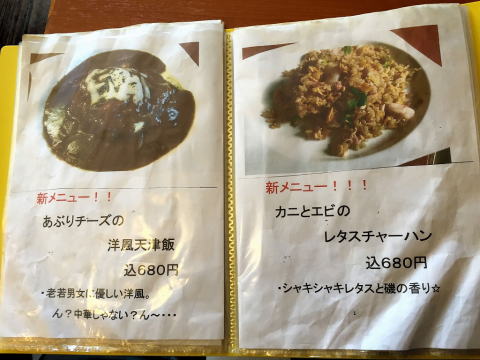 新メニュー！！
あぶりチーズの
洋風天津飯
込680円
・老若男女に優しい洋風。
ん？中華じゃない？ん～・・・
新メニュー！！！
カニとエビの
レタスチャーハン
込680円
・シャキシャキレタスと磯の香り☆